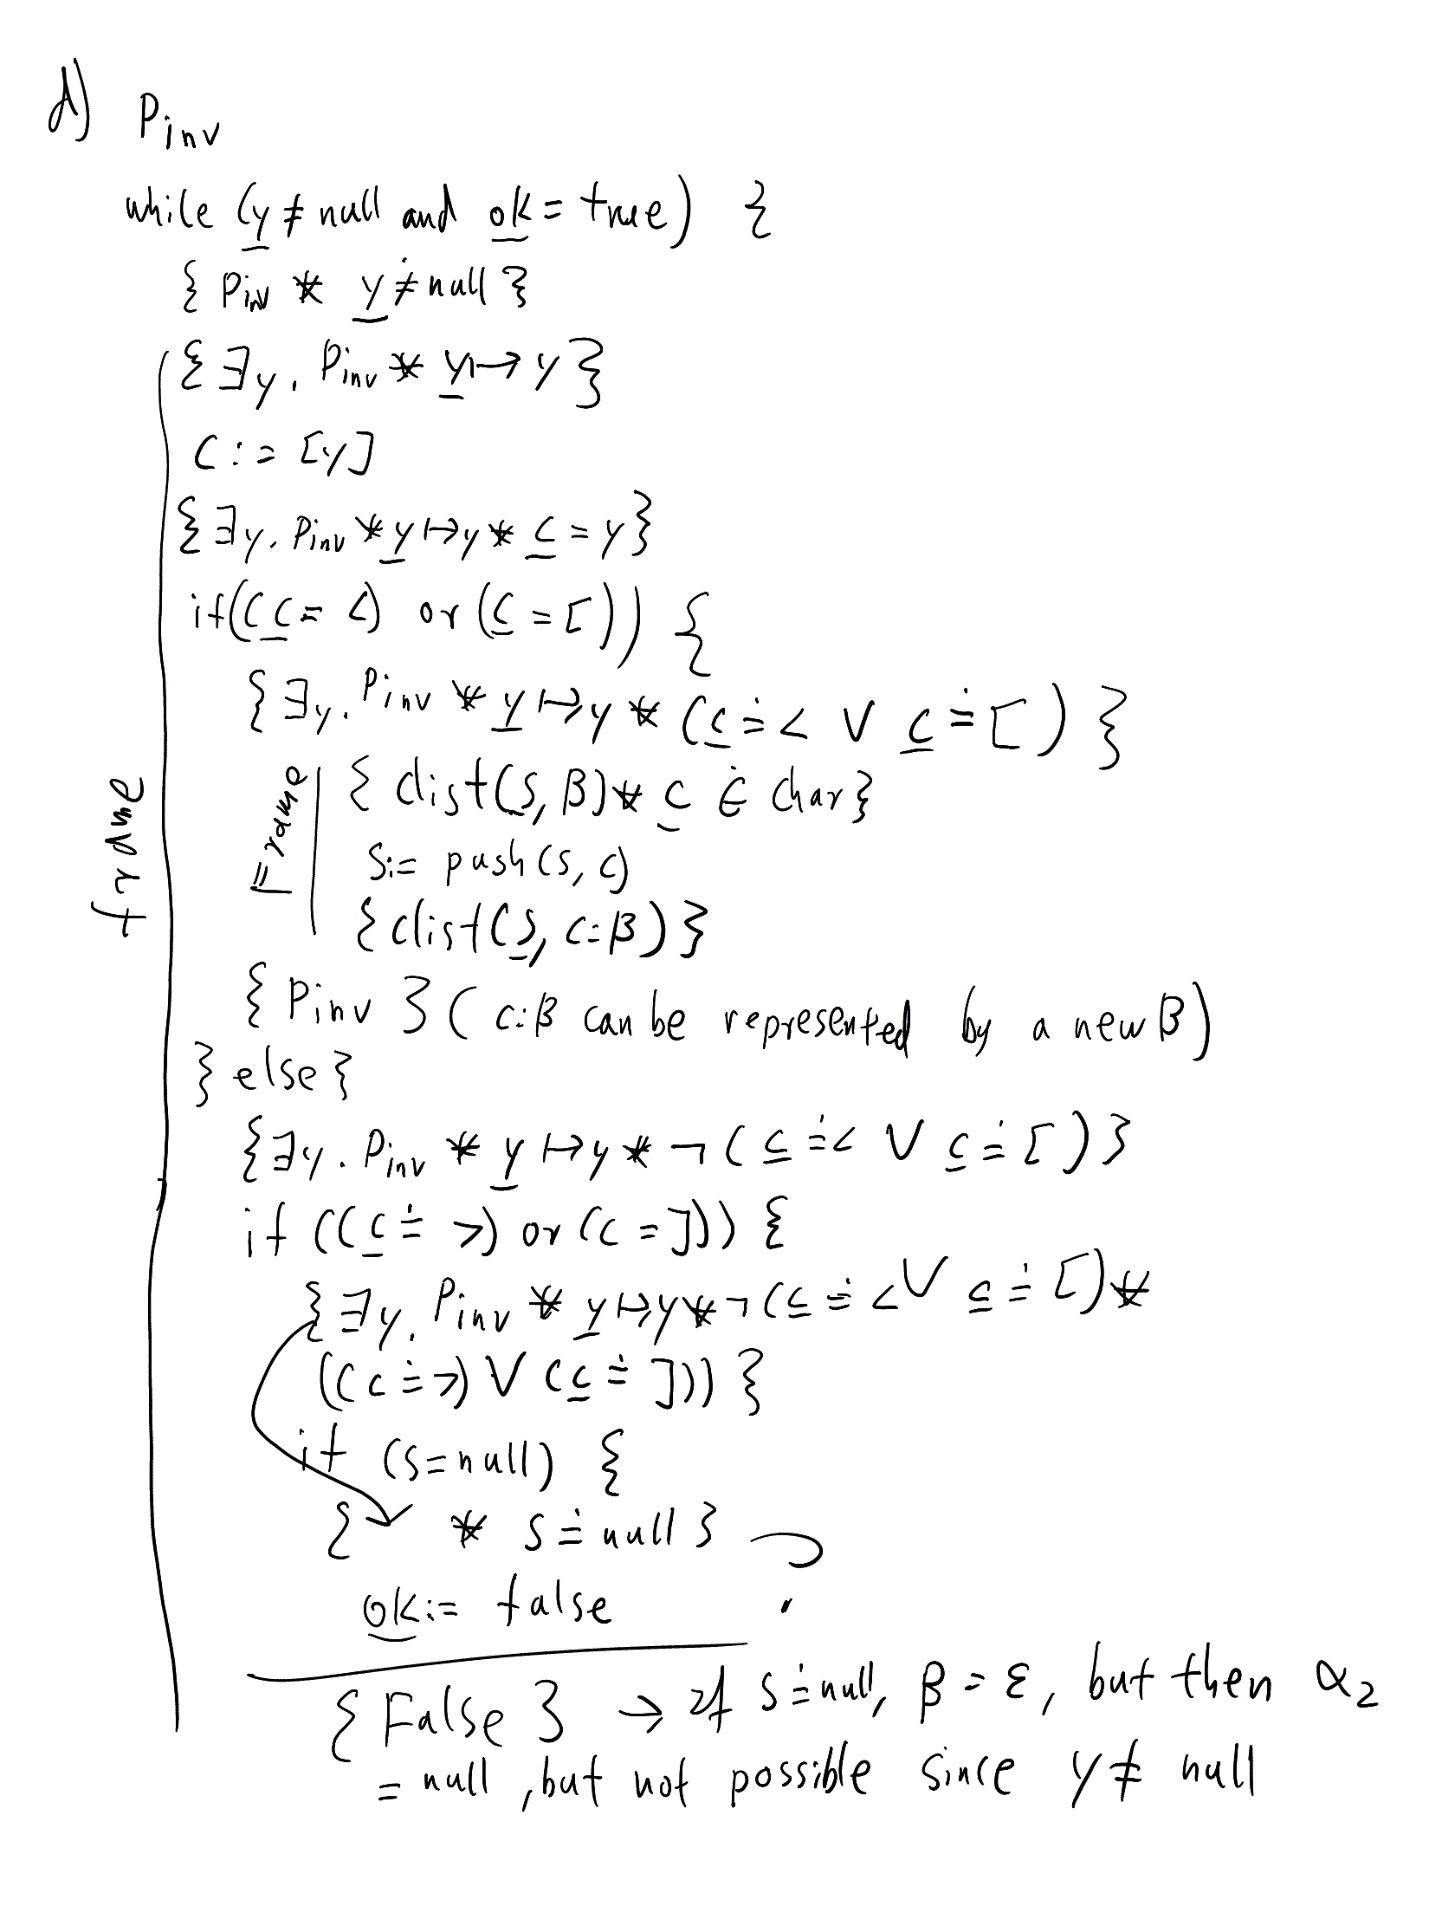 d) Pinv
while (y ≠ null and ok = true) {
{ Pinv * y ≠̇ null }
{ ∃y. Pinv * y ↦ y }
C := [y]
{ ∃y. Pinv * y ↦ y * c = y }
if((c = <) or (c = [)) {
{ ∃y. Pinv * y ↦ y * (c ≐ < ∨ c ≐ [) }
{ clist(s, β) * c ∈̇ char }
S := push(s, c)
{ clist(s, c:β) }
Frame
frame
{ Pinv } ( c:β can be represented by a new β)
} else {
{ ∃y. Pinv * y ↦ y * ¬ (c ≐ < ∨ c ≐ [) }
if ((c ≐ >) or (c = ])) {
{ ∃y. Pinv * y ↦ y * ¬ (c ≐ < ∨ c ≐ [) *
((c ≐ >) ∨ (c ≐ ])) }
if (s = null) {
{ * s ≐ null } ?
ok := false
{ False } → If s ≐ null, β = ε, but then α2
= null, but not possible since y ≠ null